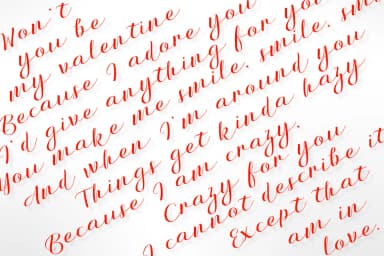 Won't
you be
my valentine
Because I adore you
I'd give anything for you
You make me smile. smile. smile
And when I'm around you
Things get kinda hazy
Because I am crazy.
Crazy for you
I cannot describe it
Except that
am in
love.